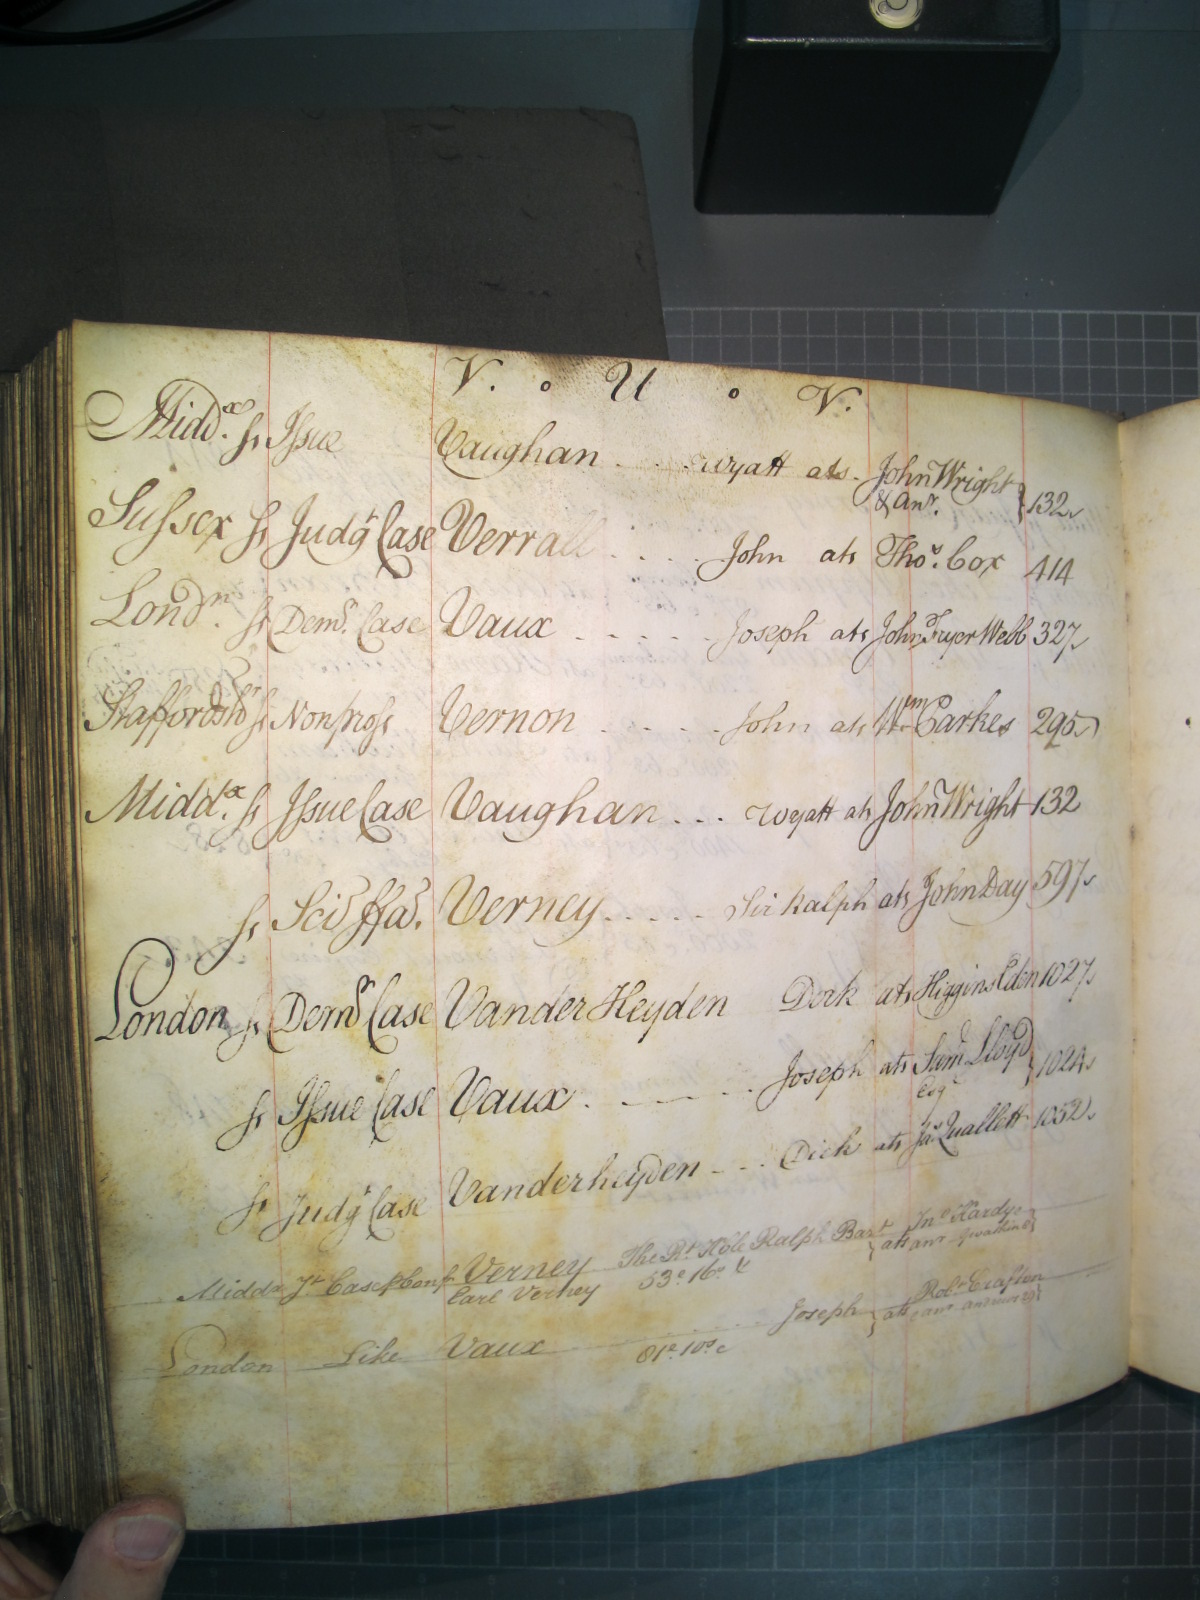 V. o U o V.
Midd.x ss Issue Vaughan . . . . Wyatt ats. John Wright & anr. } 132
Sussex ss Judgt Case Verrall . . . . John ats Thos. Cox 414
Londn. ss Demr. Case Vaux . . . . . Joseph ats John Fryer Webb 327
Staffordsh.r ss Nonpross Vernon . . . . John ats Wm Parkes 295
Midd.x ss Issue Case Vaughan . . . Wyatt ats John Wright 132
ss Sci ffa. Verney . . . . . Sir Ralph ats John Day 597
London ss Demr Case Vander Heyden Dirk ats Higgins Eden 1027
ss Issue Case Vaux . . . . Joseph ats Saml Lloyd Esqr } 1024
ss Judgt Case Vanderheyden . . . Dick ats Jas Quallett 1052
Middx Jt Case p Conf. Verney The Rt Hble Ralph Bart } ats Jno Hardy
Earl Verney 53 . 16
London Like Vaux . . . . Joseph } ats Robt Crafton
81 . 10s